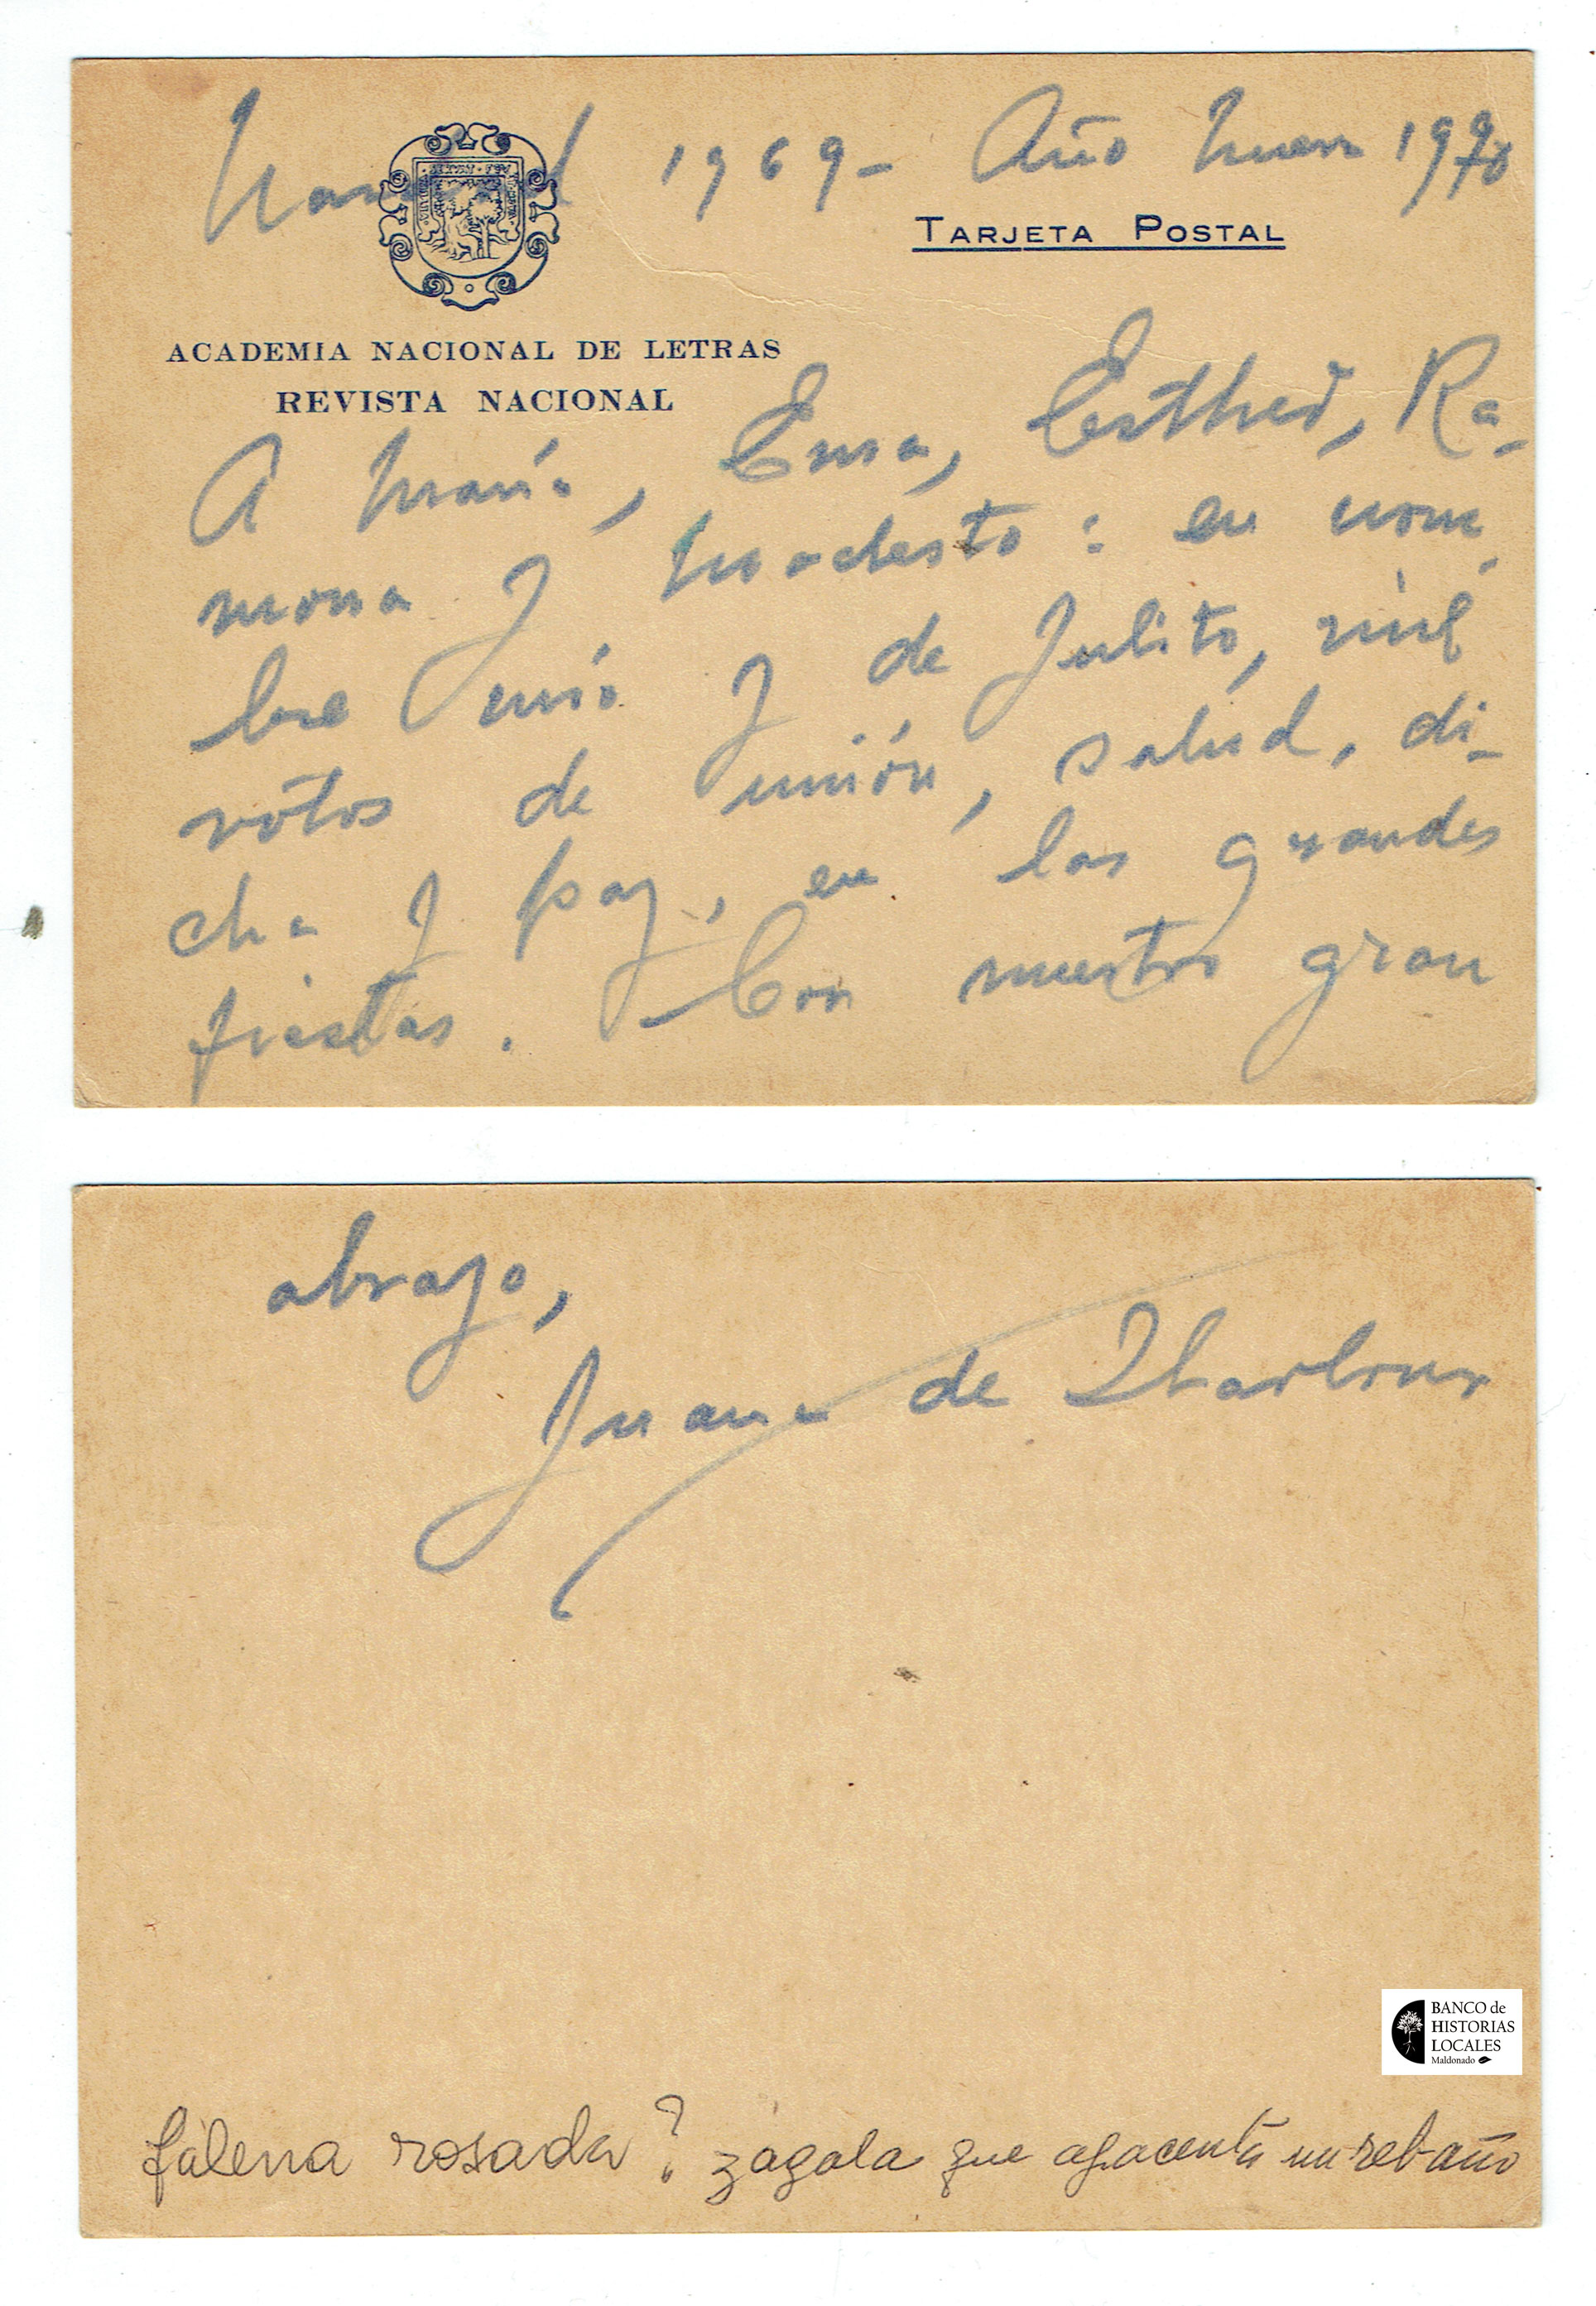 Navidad 1969 - Año Nuevo 1970
TARJETA POSTAL
ACADEMIA NACIONAL DE LETRAS
REVISTA NACIONAL
A María, Ema, Esther, Ra-
mona y Modesto: en nom-
bre mío y de Julito, mil
votos de unión, salud, di-
cha y paz, en las grandes
fiestas. Con nuestro gran
abrazo,
Juana de Ibarbourou
BANCO de
HISTORIAS
LOCALES
Maldonado
falena rosada? zagala que apacenta un rebaño